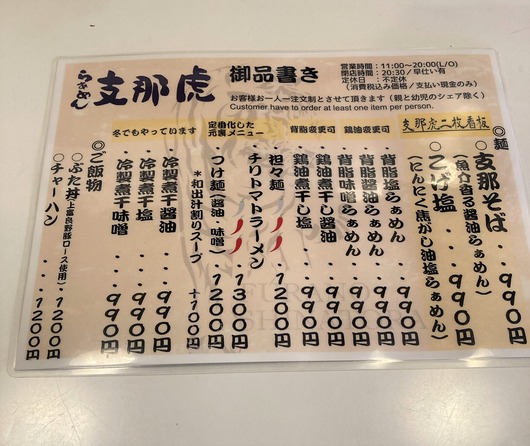 らぁめん 支那虎
御品書き
営業時間：11:00～20:00(L/O)
閉店時間：20:30／早仕い有
定休日 ：不定休
（消費税込み価格／支払い現金のみ）
お客様お一人一注文制とさせて頂きます（親と幼児のシェア除く）
Customer have to order at least one item per person.
◎麺
支那虎二枚看板
・支那そば・９９０円
（魚介香る醤油らぁめん）
・こげ塩・・９９０円
（にんにく焦がし油塩らぁめん）
背脂変更可 鶏油変更可
・背脂塩らぁめん・９９０円
・背脂醤油らぁめん・９９０円
・背脂味噌らぁめん・９９０円
・鶏油煮干し醤油・９９０円
・鶏油煮干し塩・・９９０円
定番化した
元裏メニュー
・担々麺・・１２００円
・チリトマトラーメン・１３００円
・つけ麺（醤油・味噌）・１２００円
＊和出汁割りスープ ＋１００円
冬でもやっています
・冷製煮干醤油・・９９０円
・冷製煮干塩・・・９９０円
・冷製煮干味噌・・９９０円
◎ご飯物
○ぶた丼（上富良野豚ロース使用）・１２００円
○チャーハン・・・１２００円
FURANO
SHINATORA